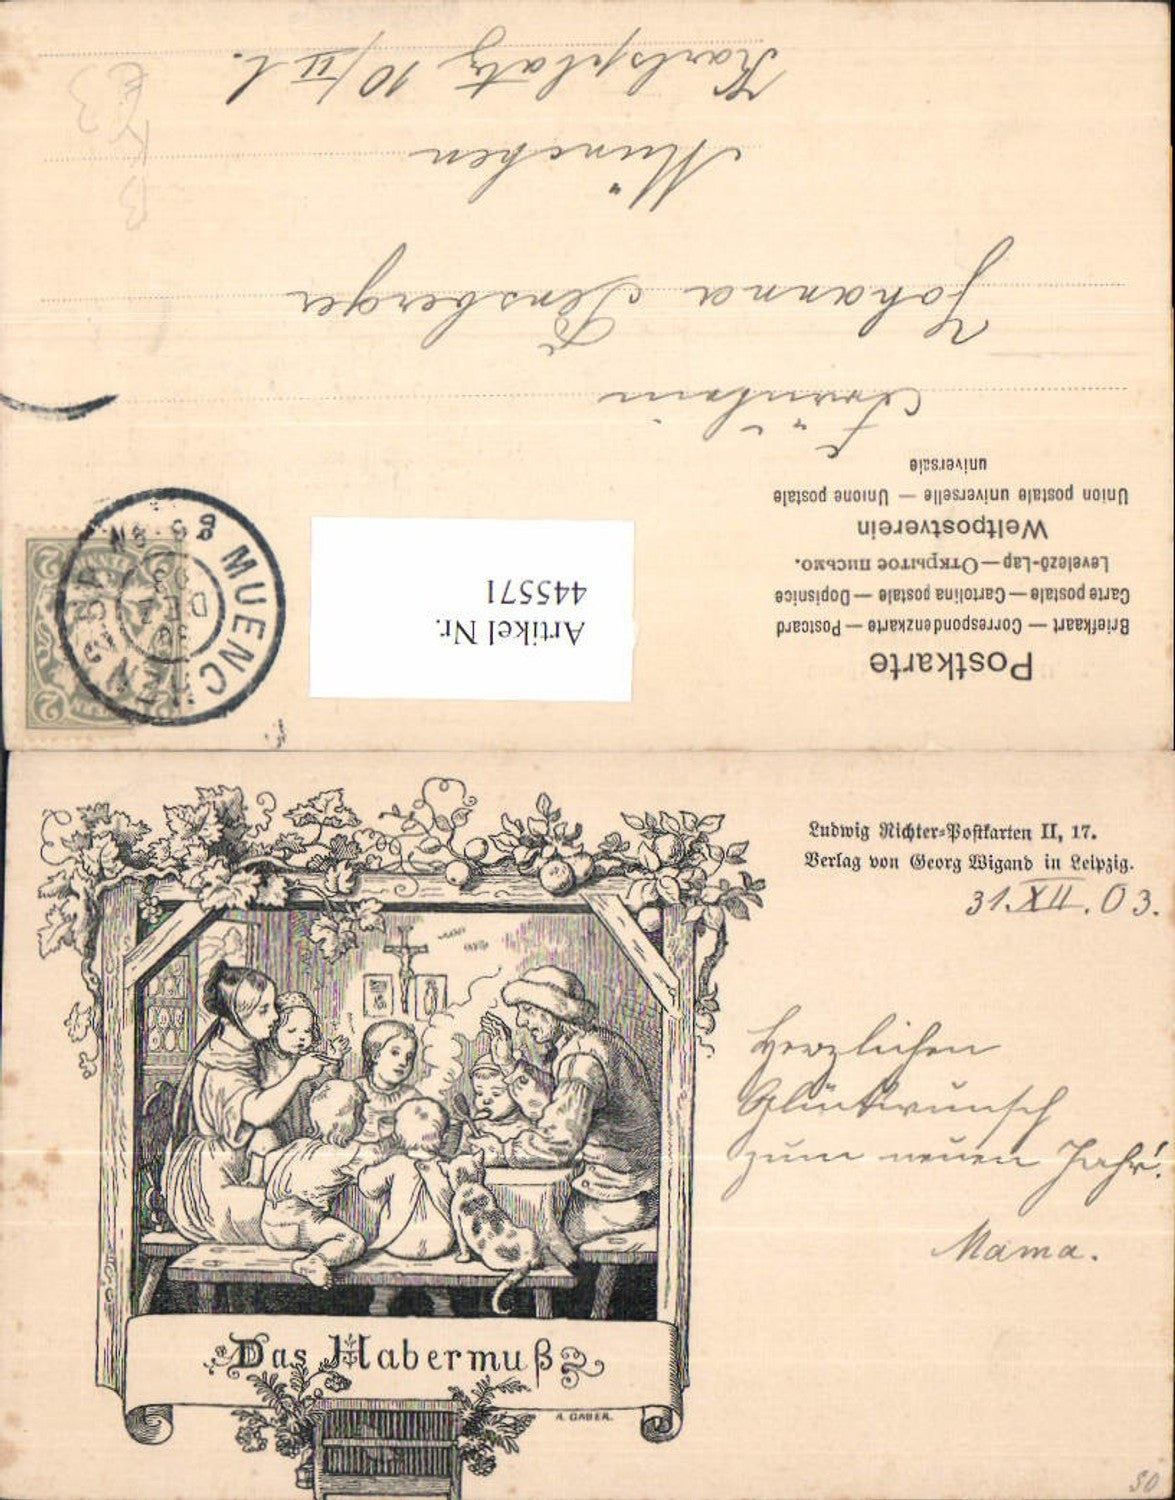 Postkarte
Briefkaart — Correspondenzkarte — Postcard
Carte postale — Cartolina postale — Dopisnice
Levelező-Lap — Открытое письмо.
Weltpostverein
Union postale universelle — Unione postale
universale
Artikel Nr.
445571
MUENCHEN
30
DEZ
03
8-9 N
2
2
Fräulein
Johanna
München
Karlsplatz 10/III l.
Ludwig Richter-Postkarten II, 17.
Verlag von Georg Wigand in Leipzig.
31.XII.03.
Herzlichen
Glückwunsch
zum neuen Jahr!
Mama.
Das Habermuß
A. GABER.
30